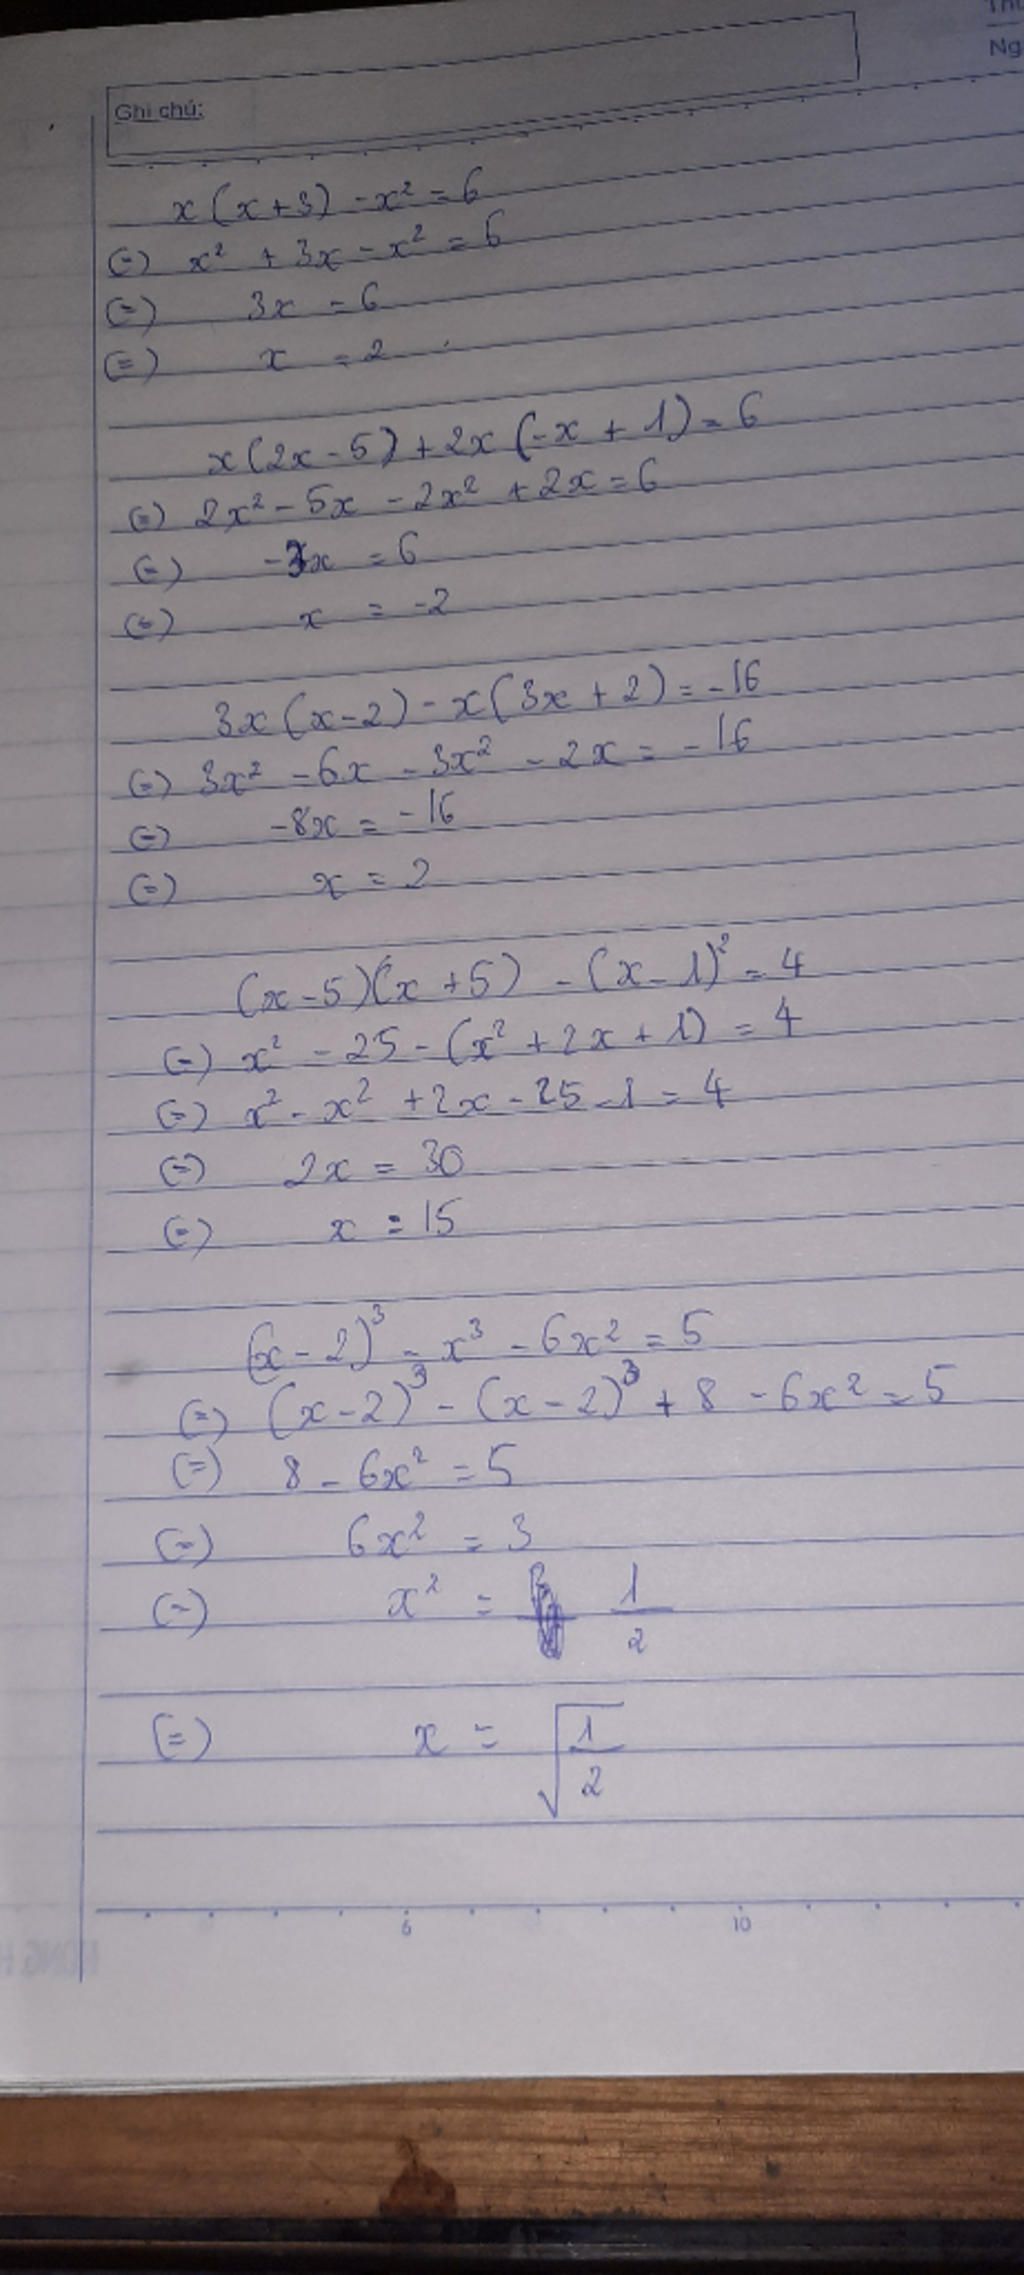 Ng
Ghi chú:
x(x+3) - x² = 6
(=) x² + 3x - x² = 6
(=) 3x = 6
(=) x = 2
x(2x-5) + 2x(-x+1) = 6
(=) 2x² - 5x - 2x² + 2x = 6
(=) -3x = 6
(=) x = -2
3x(x-2) - x(3x+2) = -16
(=) 3x² - 6x - 3x² - 2x = -16
(=) -8x = -16
(=) x = 2
(x-5)(x+5) - (x-1)² = 4
(=) x² - 25 - (x² + 2x + 1) = 4
(=) x² - x² + 2x - 25 - 1 = 4
(=) 2x = 30
(=) x = 15
(x-2)³ - x³ - 6x² = 5
(=) (x-2)³ - (x-2)³ + 8 - 6x² = 5
(=) 8 - 6x² = 5
(=) 6x² = 3
(=) x² = 1/2
(=) x = √(1/2)
6 10